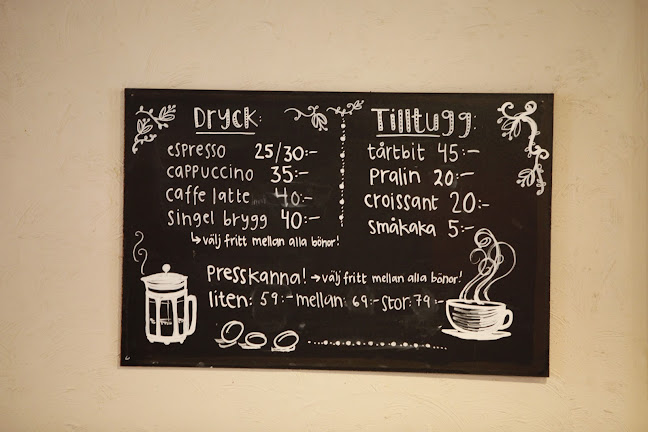 Dryck:
espresso 25/30:-
cappuccino 35:-
caffe latte 40:-
singel brygg 40:-
↳ välj fritt mellan alla bönor!
Tilltugg:
tårtbit 45:-
pralin 20:-
croissant 20:-
småkaka 5:-
Presskanna! → välj fritt mellan alla bönor!
liten: 59:- mellan: 69:- stor: 79:-